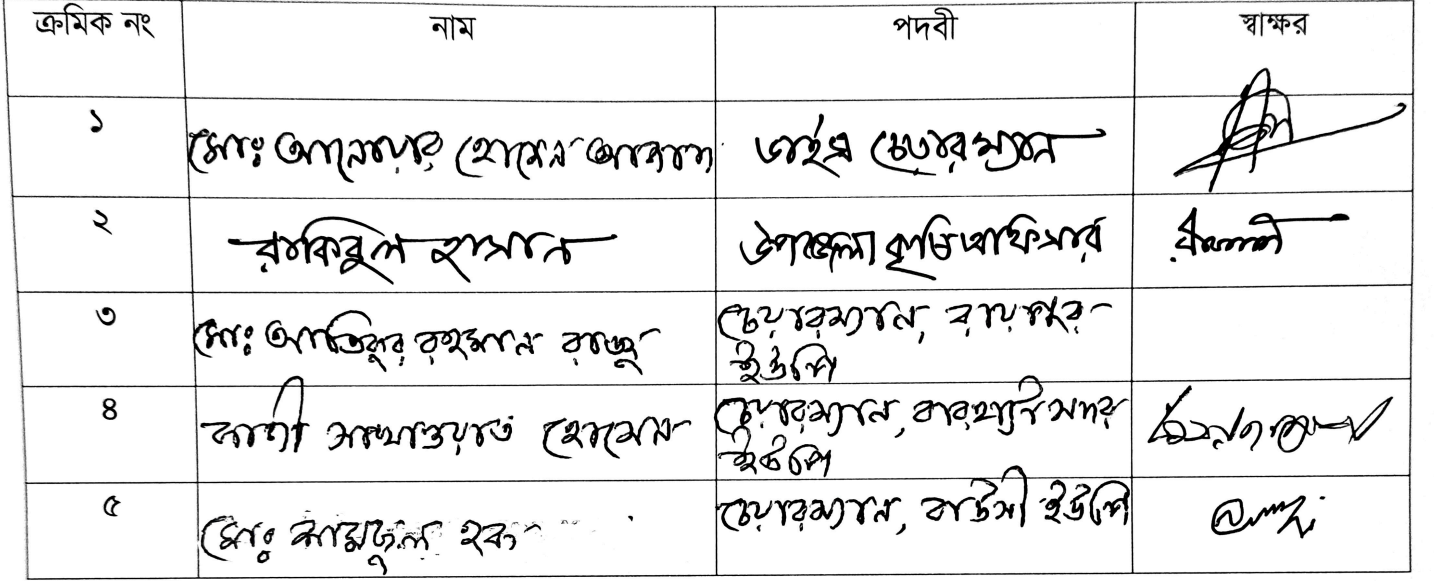 ক্রমিক নং নাম পদবী স্বাক্ষর
১ মোঃ আনোয়ার হোসেন ভাইস চেয়ারম্যান
২ রাকিবুল হাসান উপজেলা কৃষি অফিসার
৩ মোঃ আতিকুর রহমান রাজু চেয়ারম্যান, রায়পুর
ইউপি
৪ কাজী সাখাওয়াত হোসেন চেয়ারম্যান, বারহাট্টা সদর
ইউপি
৫ মোঃ হক চেয়ারম্যান, বাউসী ইউপি